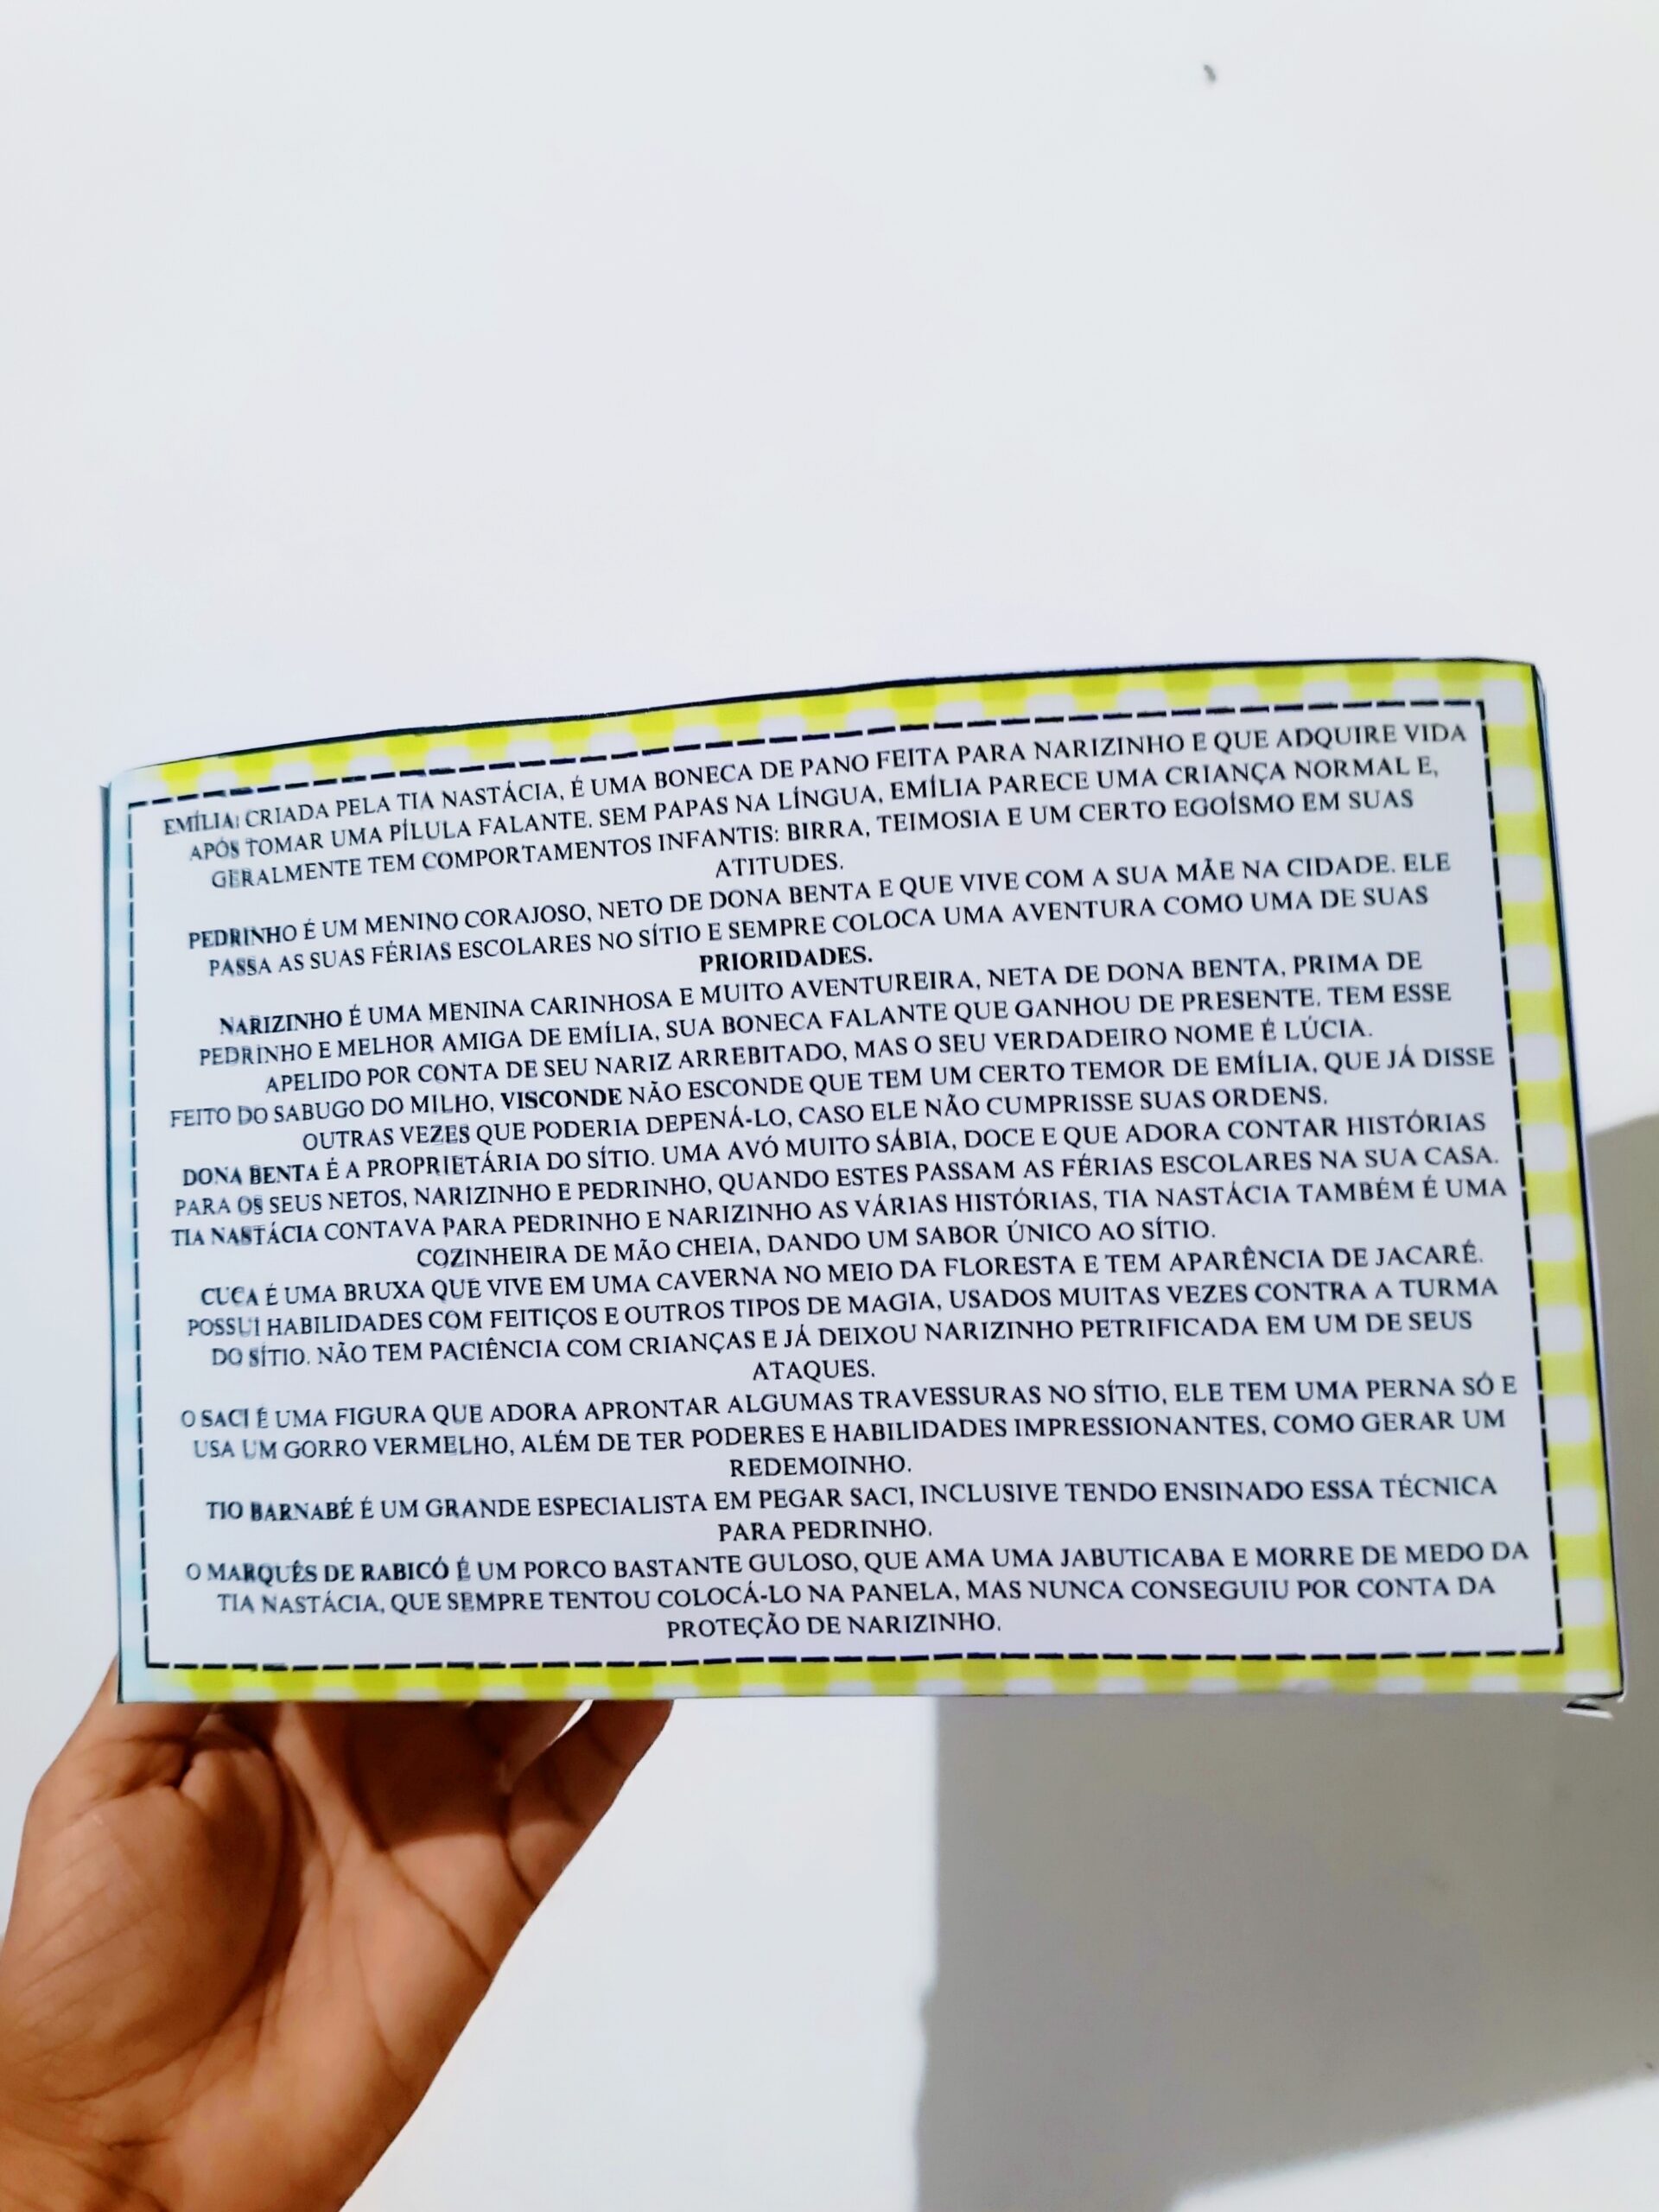 EMÍLIA: CRIADA PELA TIA NASTÁCIA, É UMA BONECA DE PANO FEITA PARA NARIZINHO E QUE ADQUIRE VIDA
APÓS TOMAR UMA PÍLULA FALANTE. SEM PAPAS NA LÍNGUA, EMÍLIA PARECE UMA CRIANÇA NORMAL E,
GERALMENTE TEM COMPORTAMENTOS INFANTIS: BIRRA, TEIMOSIA E UM CERTO EGOÍSMO EM SUAS
ATITUDES.
PEDRINHO É UM MENINO CORAJOSO, NETO DE DONA BENTA E QUE VIVE COM A SUA MÃE NA CIDADE. ELE
PASSA AS SUAS FÉRIAS ESCOLARES NO SÍTIO E SEMPRE COLOCA UMA AVENTURA COMO UMA DE SUAS
PRIORIDADES.
NARIZINHO É UMA MENINA CARINHOSA E MUITO AVENTUREIRA, NETA DE DONA BENTA, PRIMA DE
PEDRINHO E MELHOR AMIGA DE EMÍLIA, SUA BONECA FALANTE QUE GANHOU DE PRESENTE. TEM ESSE
APELIDO POR CONTA DE SEU NARIZ ARREBITADO, MAS O SEU VERDADEIRO NOME É LÚCIA.
FEITO DO SABUGO DO MILHO, VISCONDE NÃO ESCONDE QUE TEM UM CERTO TEMOR DE EMÍLIA, QUE JÁ DISSE
OUTRAS VEZES QUE PODERIA DEPENÁ-LO, CASO ELE NÃO CUMPRISSE SUAS ORDENS.
DONA BENTA É A PROPRIETÁRIA DO SÍTIO. UMA AVÓ MUITO SÁBIA, DOCE E QUE ADORA CONTAR HISTÓRIAS
PARA OS SEUS NETOS, NARIZINHO E PEDRINHO, QUANDO ESTES PASSAM AS FÉRIAS ESCOLARES NA SUA CASA.
TIA NASTÁCIA CONTAVA PARA PEDRINHO E NARIZINHO AS VÁRIAS HISTÓRIAS, TIA NASTÁCIA TAMBÉM É UMA
COZINHEIRA DE MÃO CHEIA, DANDO UM SABOR ÚNICO AO SÍTIO.
CUCA É UMA BRUXA QUE VIVE EM UMA CAVERNA NO MEIO DA FLORESTA E TEM APARÊNCIA DE JACARÉ.
POSSUI HABILIDADES COM FEITIÇOS E OUTROS TIPOS DE MAGIA, USADOS MUITAS VEZES CONTRA A TURMA
DO SÍTIO. NÃO TEM PACIÊNCIA COM CRIANÇAS E JÁ DEIXOU NARIZINHO PETRIFICADA EM UM DE SEUS
ATAQUES.
O SACI É UMA FIGURA QUE ADORA APRONTAR ALGUMAS TRAVESSURAS NO SÍTIO, ELE TEM UMA PERNA SÓ E
USA UM GORRO VERMELHO, ALÉM DE TER PODERES E HABILIDADES IMPRESSIONANTES, COMO GERAR UM
REDEMOINHO.
TIO BARNABÉ É UM GRANDE ESPECIALISTA EM PEGAR SACI, INCLUSIVE TENDO ENSINADO ESSA TÉCNICA
PARA PEDRINHO.
O MARQUÊS DE RABICÓ É UM PORCO BASTANTE GULOSO, QUE AMA UMA JABUTICABA E MORRE DE MEDO DA
TIA NASTÁCIA, QUE SEMPRE TENTOU COLOCÁ-LO NA PANELA, MAS NUNCA CONSEGUIU POR CONTA DA
PROTEÇÃO DE NARIZINHO.